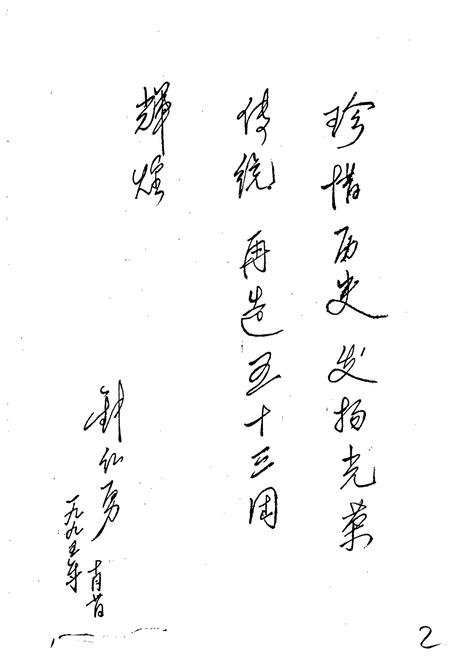 珍惜历史 发扬光荣
传统 再造五十三团
辉煌
一九九五年
2